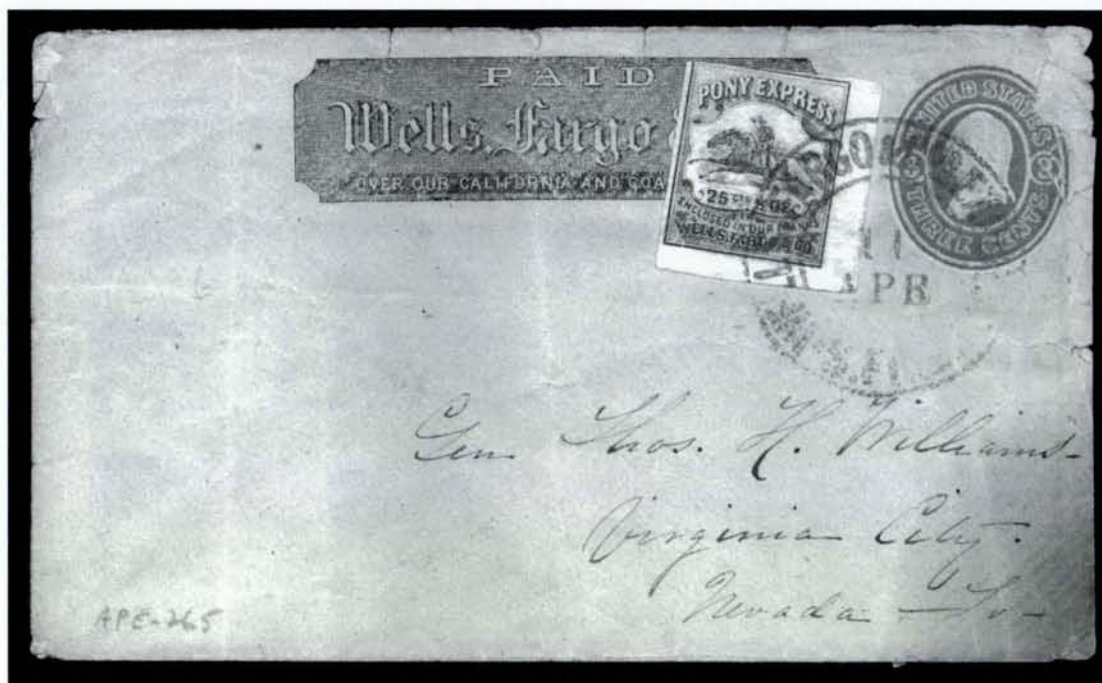 PAID
Wells, Fargo &
OVER OUR CALIFORNIA AND COA
PONY EXPRESS
25
ENCLOSED IN OUR FRANKS
WELLS, FARGO & CO.
UNITED STATES
THREE CENTS
11
APR
Gen Thos. H. Williams-
Virginia City.
Nevada
APE-265